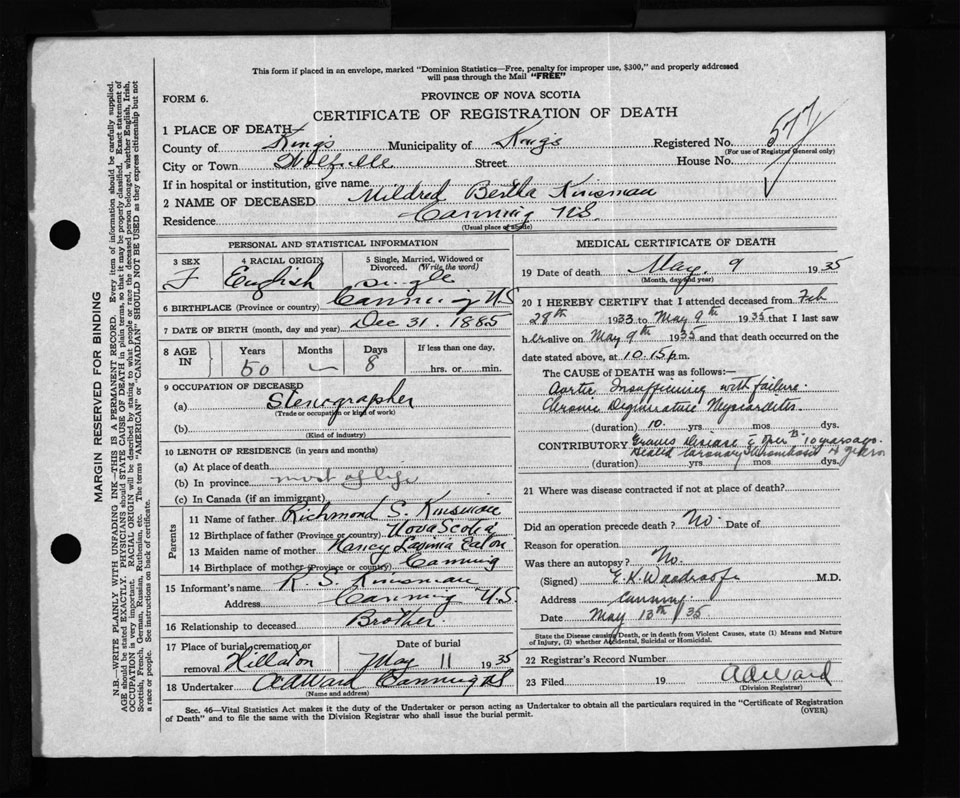 This form if placed in an envelope, marked "Dominion Statistics—Free, penalty for improper use, $300," and properly addressed
will pass through the Mail "FREE"
FORM 6.
PROVINCE OF NOVA SCOTIA
CERTIFICATE OF REGISTRATION OF DEATH
1 PLACE OF DEATH
County of Kings Municipality of Kings Registered No. 577
(For use of Registrar General only)
City or Town Wolfville Street House No.
If in hospital or institution, give name
2 NAME OF DECEASED Mildred Bertha Kinsman
Residence Canning N.S.
(Usual place of abode)
PERSONAL AND STATISTICAL INFORMATION
3 SEX 4 RACIAL ORIGIN 5 Single, Married, Widowed or Divorced. (Write the word)
F English Single
6 BIRTHPLACE (Province or country) Canning N S
7 DATE OF BIRTH (month, day and year) Dec 31. 1885
8 AGE IN Years Months Days If less than one day,
50 — 8 hrs. or min.
9 OCCUPATION OF DECEASED
(a) Stenographer
(Trade or occupation or kind of work)
(b)
(Kind of industry)
10 LENGTH OF RESIDENCE (in years and months)
(a) At place of death
(b) In province most of life
(c) In Canada (if an immigrant)
Parents
11 Name of father Richmond S. Kinsman
12 Birthplace of father (Province or country) Nova Scotia
13 Maiden name of mother Nancy Lavinia Eaton
14 Birthplace of mother (Province or country) Canning
15 Informant's name R. S. Kinsman
Address Canning N.S.
16 Relationship to deceased Brother.
17 Place of burial, cremation or removal Hillaton Date of burial May 11 1935
18 Undertaker A A Ward Canning NS
(Name and address)
MEDICAL CERTIFICATE OF DEATH
19 Date of death May. 9 1935
(Month, day and year)
20 I HEREBY CERTIFY that I attended deceased from Feb
28th 1933 to May 9th 1935 that I last saw
her alive on May 9th 1935 and that death occurred on the
date stated above, at 10.15 p.m.
The CAUSE of DEATH was as follows:—
Aortic Insufficiency with failure.
Chronic Degenerative Myocarditis
(duration) 10. yrs. mos. dys.
CONTRIBUTORY Graves Disease 10 years ago.
Healed Coronary Thrombosis
(duration) yrs. mos dys.
21 Where was disease contracted if not at place of death?
Did an operation precede death? No. Date of
Reason for operation
Was there an autopsy? No.
(Signed) E. K. Woodroofe M.D.
Address Canning
Date May 13th /35
State the Disease causing Death, or in death from Violent Causes, state (1) Means and Nature
of Injury, (2) whether Accidental, Suicidal or Homicidal.
22 Registrar's Record Number
23 Filed 19 A A Ward
(Division Registrar)
Sec. 46—Vital Statistics Act makes it the duty of the Undertaker or person acting as Undertaker to obtain all the particulars required in the "Certificate of Registration
of Death" and to file the same with the Division Registrar who shall issue the burial permit. (OVER)
MARGIN RESERVED FOR BINDING
N.B.—WRITE PLAINLY WITH UNFADING INK—THIS IS A PERMANENT RECORD. Every item of information should be carefully supplied.
AGE should be stated EXACTLY. PHYSICIANS should STATE CAUSE OF DEATH in plain terms, so that it may be properly classified. Exact statement of
OCCUPATION is very important. RACIAL ORIGIN will be described by stating to what people or race the deceased person belonged, whether English, Irish,
Scottish, French, German, Russian, Ruthenian, etc. The terms "AMERICAN" or "CANADIAN" SHOULD NOT BE USED as they express citizenship but not
a race or people. See instructions on back of certificate.